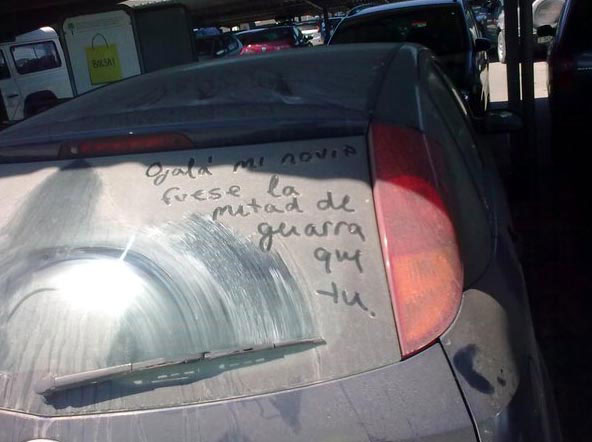 BOLSA!
Ojalá mi novia
fuese la
mitad de
guarra
que
tu.